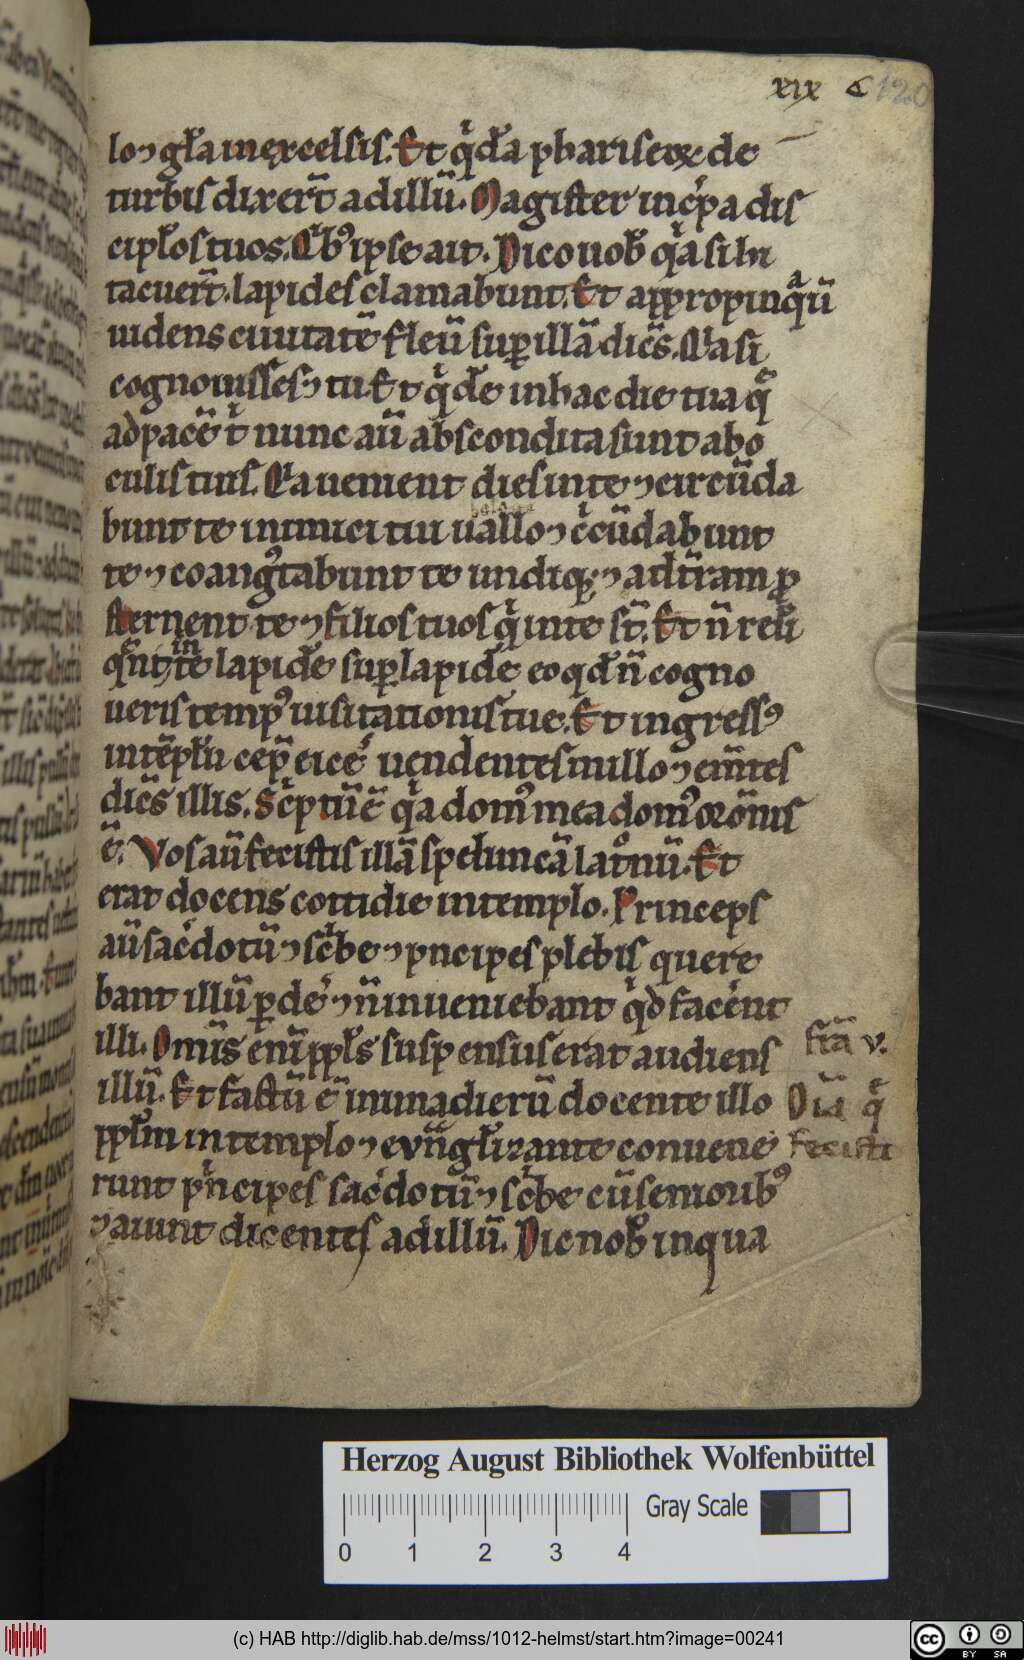 xix c 120
lo ⁊ gl̄a in excelsis. Et qͥdā pharisęoꝝ de
turbis dixer̄t ad illū. Magister incͬpa dis
cipl̄os tuos. Qͥbꝰ ipse ait. Dico uob̄ qͥa si hi
tacuer̄t. lapides clamabunt. Et appropinqͣuit
uidens ciuitatē fleuͥ suꝑ illā dicēs. Qͥa si
cognouisses ⁊ tu. Et qͥdē in hac die tua qͤ
ad pacē tͥ nunc aū abscondita sunt ab o
culis tuis. Qͥa uenient dies in te ⁊ circūda
bunt te inimici tui uallo ⁊ cͥcūdabunt
te ⁊ coangꝰtabunt te undiqꝫ ⁊ ad t̄ram ꝓ
sternent te ⁊ filios tuos qͥ in te st̄. Et n̄ reli
qͤnt in te lapidē suꝑ lapidē eo qd̄ n̄ cogno
ueris tempꝰ uisitationis tuę. Et ingressꝰ
in tēplū cep̄ eicē uendentes in illo ⁊ em̄tes
dicēs illis. Scͥptū ē qͥa domꝰ mea domꝰ orōnis
ē. Vos aū fecistis illā speluncā latͦnū. Et
erat docens cottidie in templo. Princeps
aū sacͤdotū ⁊ scͥbe ⁊ pͥncipes plebis quere
bant illū ꝑdē ⁊ n̄ inueniebant qͥd facēnt
illi. Omīs enī ppl̄s suspensus erat audiens
illū. Et factū ē in una dierū docente illo
ppl̄m in templo ⁊ evn̄gl̄izante conuene
runt pͥncipes sacͤdotū ⁊ scͥbe cū senioribꝰ
⁊ aiunt dicentes ad illū. Dic nob̄ in qua
fr̄ia v.
Dīa qͤ
fecisti
Herzog August Bibliothek Wolfenbüttel
0 1 2 3 4 Gray Scale
(c) HAB http://diglib.hab.de/mss/1012-helmst/start.htm?image=00241
cc BY SA